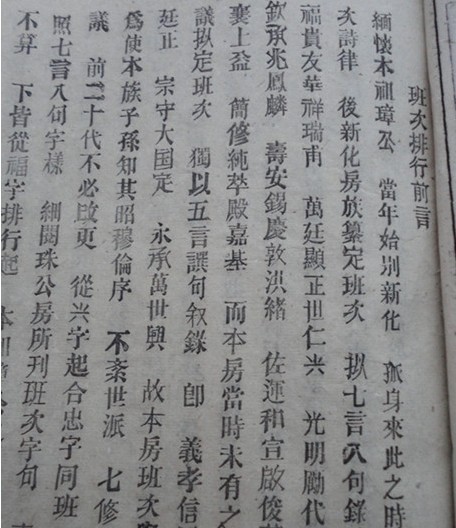 班次排行前言
緬懷本祖璋公 當年始别新化 孤身來此之時
次詩律 後新化房族纂定班次 拟七言八句錄
福貴友華祥瑞甫 萬廷顯正世仁兴 光明勵代
欽承兆鳳麟 壽安錫慶敦洪緒 佐運和宣啟俊
襄上益 簡修純萃殿嘉基 而本房當時未有之
議拟定班次 獨以五言譔句叙錄 即 義孝信
廷正 宗守大国定 永承萬世興 故本房班次
爲使本族子孫知其昭穆倫序 不紊世派 七修
議 前二十代不必啟更 從兴字起合忠字同班
照七言八句字樣 細閲珠公房所刊班次字句
不算 下皆從福字排行起